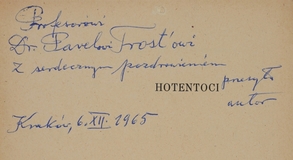 Profesorowi
Dr. Pavelovi Trost'owi
z serdecznym pozdrowieniem
przesyła
HOTENTOCI
autor
Kraków, 6.XII.1965